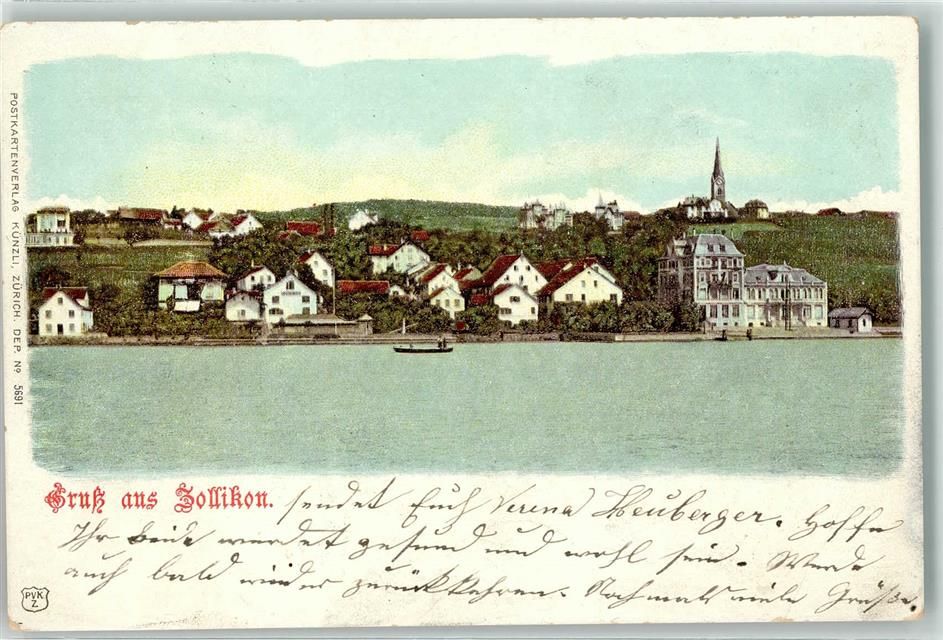 POSTKARTENVERLAG KÜNZLI, ZÜRICH. DEP. No 5691
Gruß aus Zollikon. sendet Euch Verena Heuberger. Hoffe
Ihr beide werdet gesund und wohl sein. Werde
auch bald wieder zurückkehren. Nochmals viele Grüße.
PVK
Z